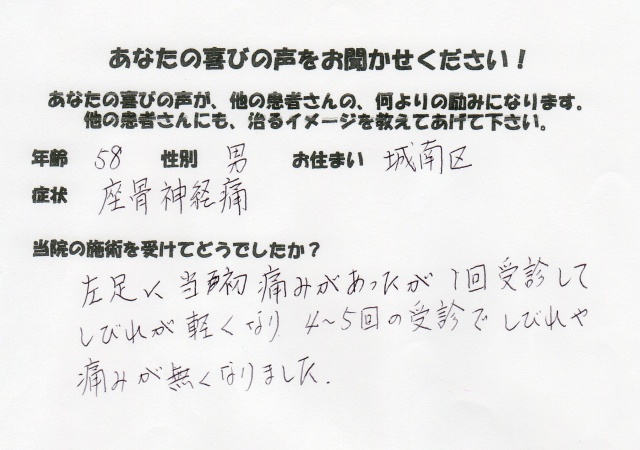 あなたの喜びの声をお聞かせください！
あなたの喜びの声が、他の患者さんの、何よりの励みになります。
他の患者さんにも、治るイメージを教えてあげて下さい。
年齢 58 性別 男 お住まい 城南区
症状 座骨神経痛
当院の施術を受けてどうでしたか？
左足に当初痛みがあったが1回受診して
しびれが軽くなり 4〜5回の受診でしびれや
痛みが無くなりました.